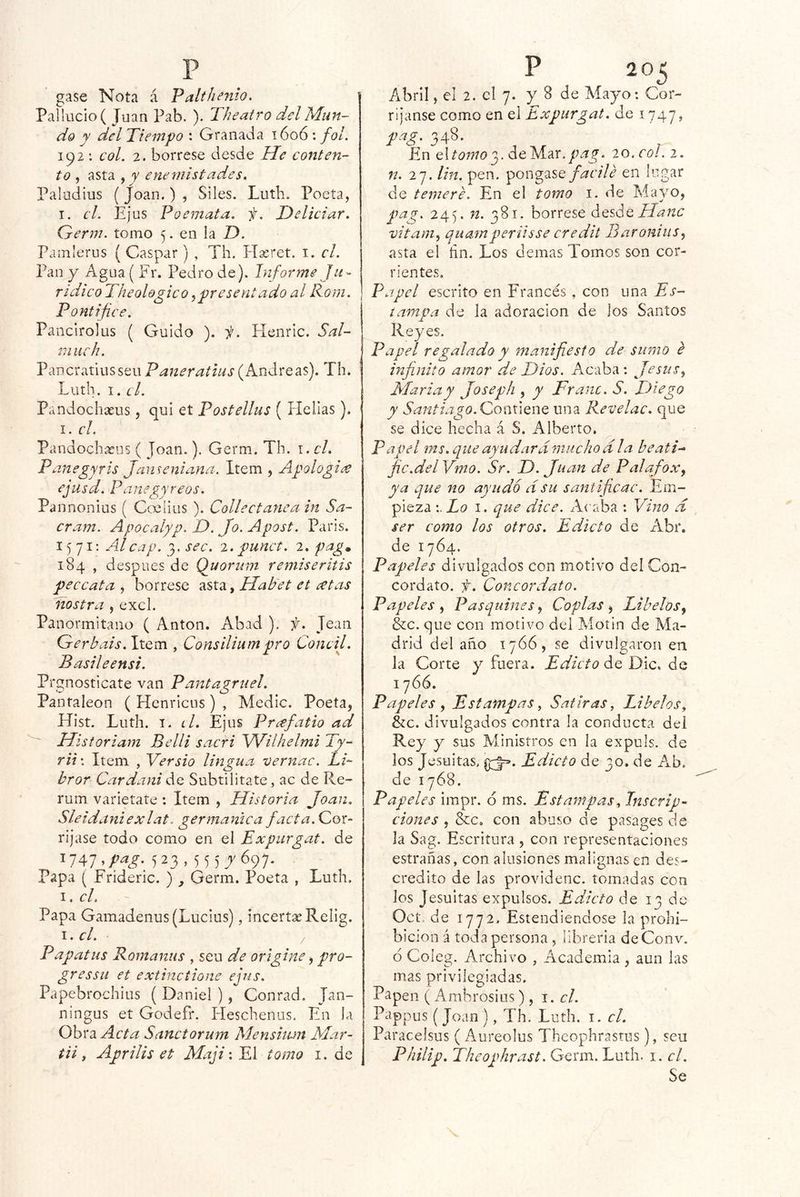 P
gase Nota á Palthenio.
Pallucio ( Juan Pab. ). Theatro del Mun-
do y del Tiempo : Granada 1606: fol.
192 : col. 2. borrese desde He conten-
to , asta , y enemistades.
Paludius ( Joan. ) , Siles. Luth. Poeta,
1. cl. Ejus Poemata. ℣. Deliciar.
Germ. tomo 5. en la D.
Pamlerus ( Caspar ) , Th. Hæret. 1. cl.
Pan y Agua ( Fr. Pedro de). Informe Ju-
ridico Theologico , presentado al Rom.
Pontifice.
Pancirolus ( Guido ). ℣. Henric. Sal-
much.
Pancratius seu Paneratius (Andreas). Th.
Luth. 1. cl.
Pandochæus , qui et Postellus ( Helias ).
1. cl.
Pandochæus ( Joan. ). Germ. Th. 1. cl.
Panegyris Janseniana. Item , Apologiæ
ejusd. Panegyreos.
Pannonius ( Cœlius ). Collectanea in Sa-
cram. Apocalyp. D. Jo. Apost. Paris.
1571: Al cap. 3. sec. 2. punct. 2. pag.
184 , despues de Quorum remiseritis
peccata , borrese asta, Habet et ætas
nostra , excl.
Panormitano ( Anton. Abad ). ℣. Jean
Gerbais. Item , Consilium pro Concil.
Basileensi.
Prgnosticate van Pantagruel.
Pantaleon ( Henricus ) , Medic. Poeta,
Hist. Luth. 1. cl. Ejus Præfatio ad
Historiam Belli sacri Wilhelmi Ty-
rii: Item , Versio lingua vernac. Li-
bror Cardani de Subtilitate, ac de Re-
rum varietate : Item , Historia Joan.
Sleidani ex lat. germanica facta. Cor-
rijase todo como en el Expurgat. de
1747, pag. 523, 555 y 697.
Papa ( Frideric. ) , Germ. Poeta , Luth.
1. cl.
Papa Gamadenus (Lucius) , incertæ Relig.
1. cl.
Papatus Romanus , seu de origine, pro-
gressu et extinctione ejus.
Papebrochius ( Daniel ) , Conrad. Jan-
ningus et Godefr. Heschenus. En la
Obra Acta Sanctorum Mensium Mar-
tii , Aprilis et Maji : El tomo 1. de
P 205
Abril, el 2. el 7. y 8 de Mayo: Cor-
rijanse como en el Expurgat. de 1747,
pag. 348.
En el tomo 3. de Mar. pag. 20. col. 2.
n. 27. lin. pen. pongase facilè en lugar
de temerè. En el tomo 1. de Mayo,
pag. 245. n. 381. borrese desde Hanc
vitam, quam periisse credit Baronius,
asta el fin. Los demas Tomos son cor-
rientes.
Papel escrito en Francés , con una Es-
tampa de la adoracion de los Santos
Reyes.
Papel regalado y manifiesto de sumo è
infinito amor de Dios. Acaba: Jesus,
Maria y Joseph , y Franc. S. Diego
y Santiago. Contiene una Revelac. que
se dice hecha á S. Alberto.
Papel ms. que ayudará mucho á la beati-
fic. del Vmo. Sr. D. Juan de Palafox,
ya que no ayudó á su santificac. Em-
pieza :. Lo 1. que dice. Acaba : Vino á
ser como los otros. Edicto de Abr.
de 1764.
Papeles divulgados con motivo del Con-
cordato. ℣. Concordato.
Papeles , Pasquines, Coplas , Libelos,
&c. que con motivo del Motin de Ma-
drid del año 1766, se divulgaron en
la Corte y fuera. Edicto de Dic. de
1766.
Papeles , Estampas, Satiras, Libelos,
&c. divulgados contra la conducta del
Rey y sus Ministros en la expuls. de
los Jesuitas, ☞. Edicto de 30. de Ab.
de 1768.
Papeles impr. ó ms. Estampas, Inscrip-
ciones , &c. con abuso de pasages de
la Sag. Escritura , con representaciones
estrañas, con alusiones malignas en des-
credito de las providenc. tomadas con
los Jesuitas expulsos. Edicto de 13 de
Oct. de 1772. Estendiendose la prohi-
bicion á toda persona , libreria de Conv.
ó Coleg. Archivo , Academia , aun las
mas privilegiadas.
Papen ( Ambrosius ) , 1. cl.
Pappus ( Joan ) , Th. Luth. 1. cl.
Paracelsus ( Aureolus Theophrastus ), seu
Philip. Theophrast. Germ. Luth. 1. cl.
Se